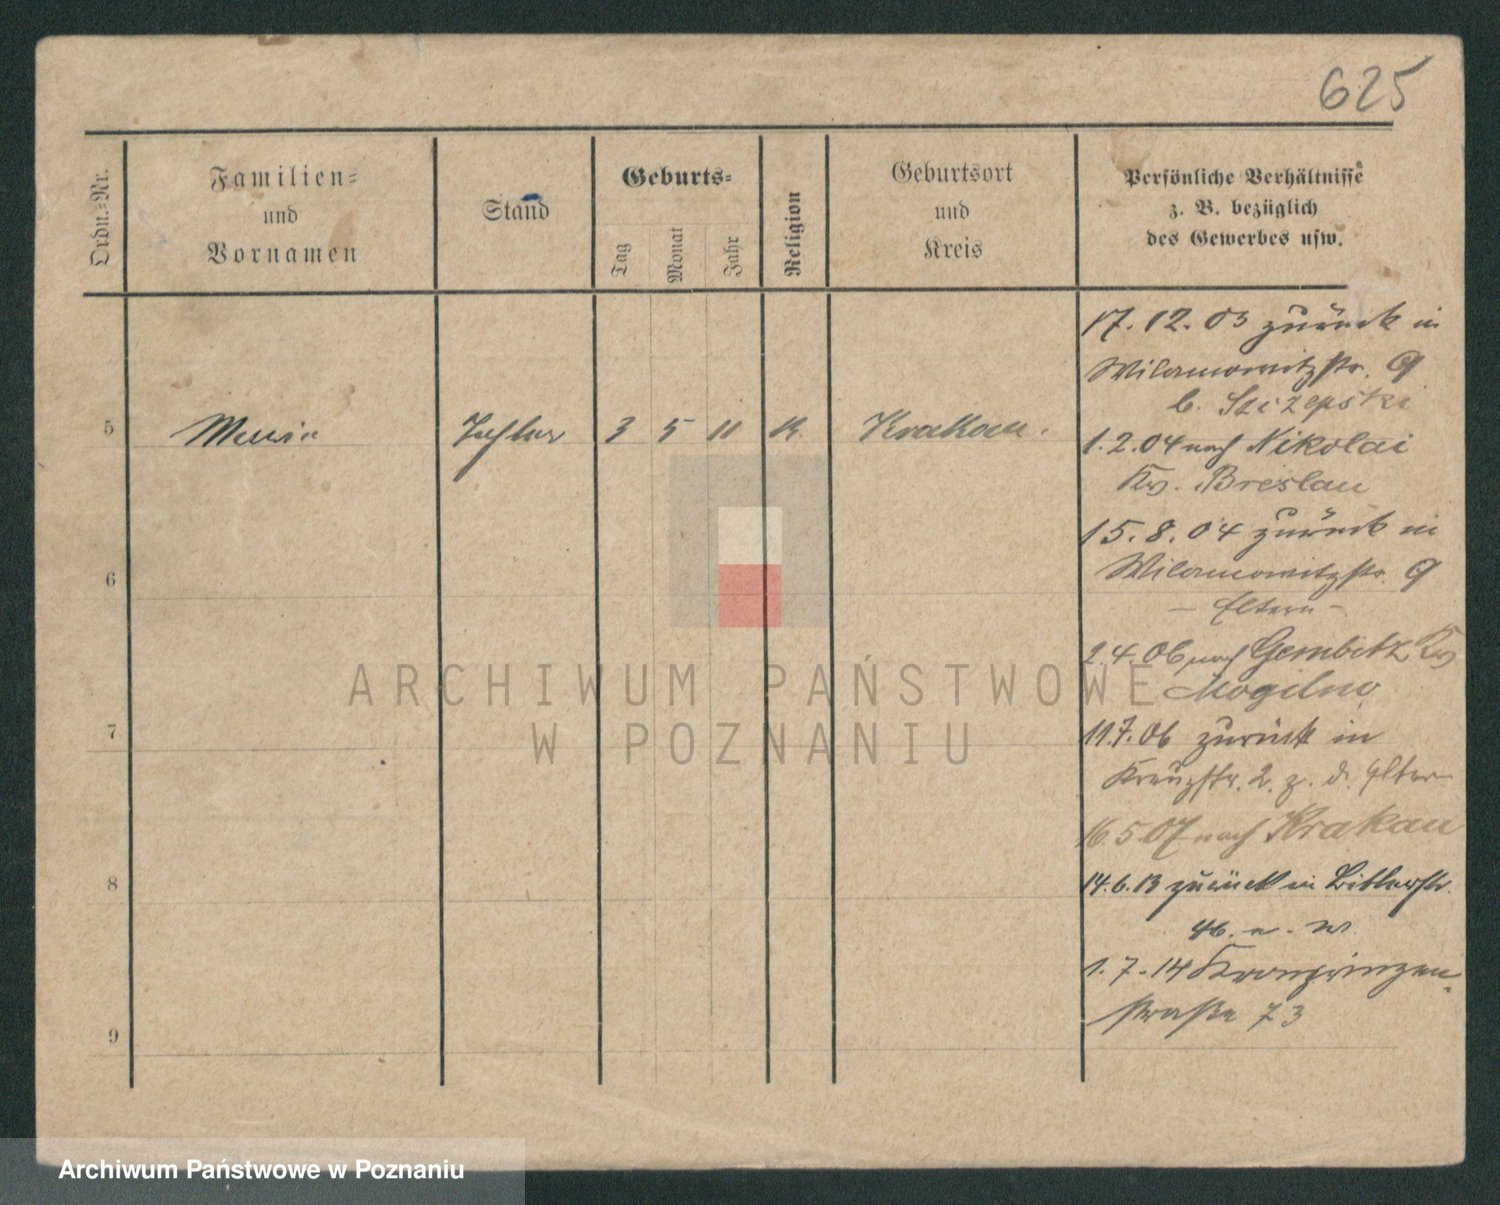 625
Ordn.-Nr.
Familien-
und
Vornamen
Stand
Geburts-
Tag
Monat
Jahr
Religion
Geburtsort
und
Kreis
Persönliche Verhältnisse
z. B. bezüglich
des Gewerbes usw.
5 Maria Tochter 3 5 11 K. Krakau.
6
7
8
9
17.12.03 zurück in
Wilamowitzstr. 9
b. Szczepski
1.2.04 nach Nikolai
Krs. Breslau
15.8.04 zurück in
Wilamowitzstr. 9
- Eltern -
2.4.06 nach Gembitz Krs
Mogilno
11.7.06 zurück in
Kreuzstr. 2. z. d. Eltern
16.5.07 nach Krakau
14.6.13 zurück in Bitterstr.
46.
1.7.14 Kronprinzen-
straße 73
ARCHIWUM PAŃSTWOWE
W POZNANIU
Archiwum Państwowe w Poznaniu